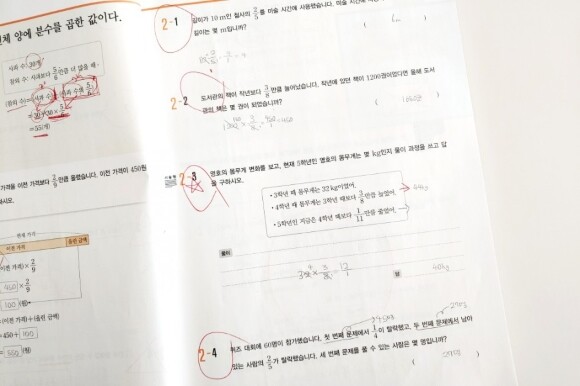 전체 양에 분수를 곱한 값이다.
사과 수: 30개
참외 수: 사과보다 5/6만큼 더 많을 때
(참외 수)=(사과 수)+(사과 수의 5/6)
=30+30×5/6
=55(개)
가격을 이전 가격보다 2/9만큼 올렸습니다. 이전 가격이 450원
하시오.
현재 가격
이전 가격
올린 금액
(이전 가격)×2/9
450×2/9
100(원)
=(이전 가격)+(올린 금액)
=450+100
=550(원)
2-1
길이가 10 m인 철사의 2/5를 미술 시간에 사용했습니다. 미술 시간에
길이는 몇 m입니까?
2-2
도서관의 책이 작년보다 3/8만큼 늘어났습니다. 작년에 있던 책이 1200권이었다면 올해 도서
관의 책은 몇 권이 되었습니까?
2-3
영호의 몸무게 변화를 보고, 현재 5학년인 영호의 몸무게는 몇 kg인지 풀이 과정을 쓰고 답
을 구하시오.
• 3학년 때 몸무게는 32 kg이었어.
• 4학년 때 몸무게는 3학년 때보다 3/8만큼 늘었어.
• 5학년인 지금은 4학년 때보다 1/11만큼 줄었어.
44kg
풀이
답
40kg
2-4
퀴즈 대회에 60명이 참가했습니다. 첫 번째 문제에서 1/4이 탈락했고, 두 번째 문제에서 남아
있는 사람의 2/5가 탈락했습니다. 세 번째 문제를 풀 수 있는 사람은 몇 명입니까?